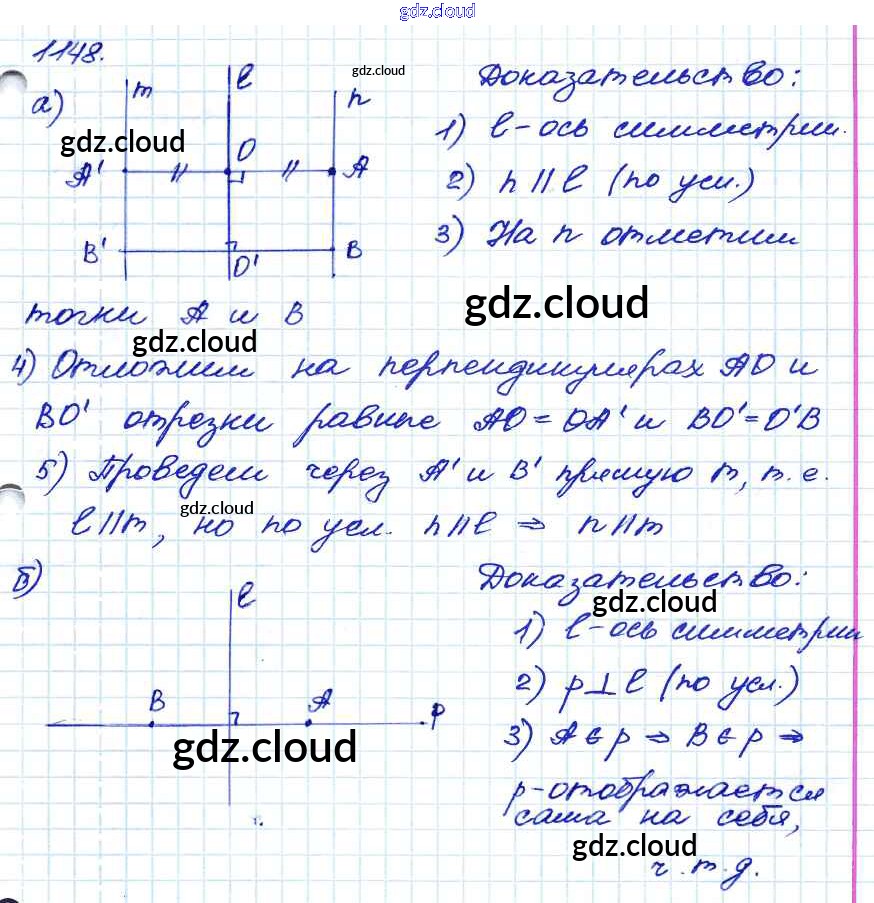 gdz.cloud
1148.
а) m l n
gdz.cloud
Доказательство:
gdz.cloud
1) l - ось симметрии.
A' O A
2) n || l (по усл.)
B' O' B
3) На n отметим
точки A и B
gdz.cloud
gdz.cloud
4) Отложим на перпендикулярах AO и
BO' отрезки равные AO = OA' и BO' = O'B
5) Проведем через A' и B' прямую m, т.е.
gdz.cloud
l || m, но по усл. n || l ⇒ n || m
б) l
Доказательство:
gdz.cloud
1) l - ось симметрии
2) p ⊥ l (по усл.)
B A p
3) A ∈ p ⇒ B ∈ p ⇒
gdz.cloud
p - отображается
сама на себя,
gdz.cloud
ч.т.д.